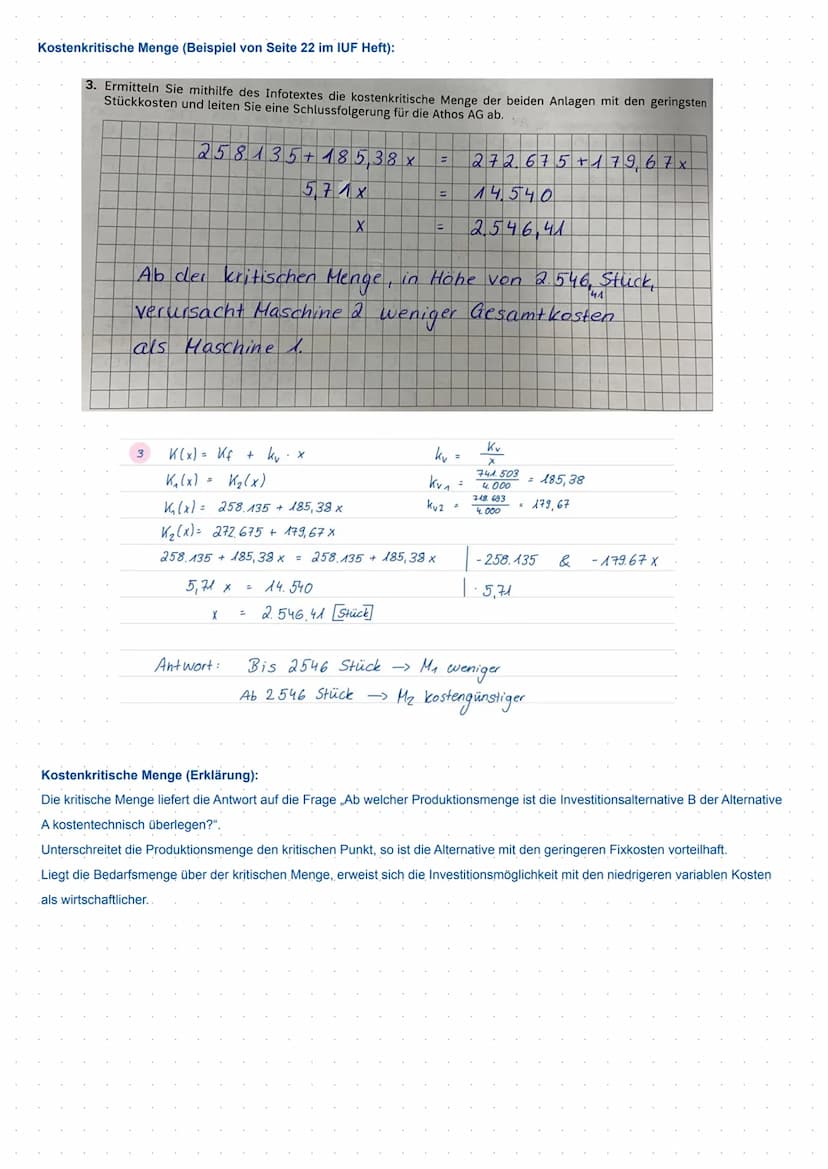 Kostenkritische Menge (Beispiel von Seite 22 im IUF Heft):
3. Ermitteln Sie mithilfe des Infotextes die kostenkritische Menge der beiden Anlagen mit den geringsten
Stückkosten und leiten Sie eine Schlussfolgerung für die Athos AG ab.
258.135 + 185,38 x = 272.675 + 179,67 x
5,71 x = 14.540
x = 2.546,41
Ab der kritischen Menge, in Höhe von 2.546,41 Stück,
verursacht Maschine 2 weniger Gesamtkosten
als Maschine 1.
3 K(x) = Kf + kv · x kv = Kv/x
K₁(x) = K₂(x) kv1 = 741.503/4.000 = 185,38
K₁(x) = 258.135 + 185,38 x kv2 = 718.683/4.000 = 179,67
K₂(x) = 272.675 + 179,67 x
258.135 + 185,38 x = 258.135 + 185,38 x | - 258.135 & - 179.67 x
5,71 x = 14.540 | : 5,71
x = 2.546,41 [Stück]
Antwort: Bis 2546 Stück → M₁ weniger
Ab 2546 Stück → M₂ kostengünstiger
Kostenkritische Menge (Erklärung):
Die kritische Menge liefert die Antwort auf die Frage „Ab welcher Produktionsmenge ist die Investitionsalternative B der Alternative
A kostentechnisch überlegen?“.
Unterschreitet die Produktionsmenge den kritischen Punkt, so ist die Alternative mit den geringeren Fixkosten vorteilhaft.
Liegt die Bedarfsmenge über der kritischen Menge, erweist sich die Investitionsmöglichkeit mit den niedrigeren variablen Kosten
als wirtschaftlicher.